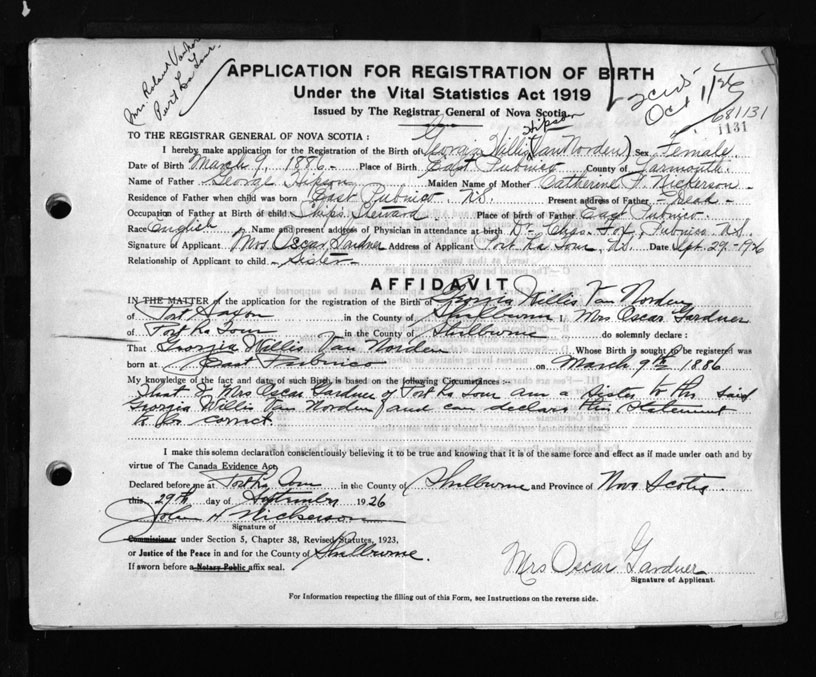 Mrs Roland Vanhor
Port La Tour
APPLICATION FOR REGISTRATION OF BIRTH
Under the Vital Statistics Act 1919
Issued by The Registrar General of Nova Scotia
Oct 1/26
681131
1131
TO THE REGISTRAR GENERAL OF NOVA SCOTIA :
Hipson
I hereby make application for the Registration of the Birth of Georgia Willis (Van Norden) Sex Female
Date of Birth March 9, 1886 - Place of Birth East Pubnico County of Yarmouth.
Name of Father George Hipson Maiden Name of Mother Catherine Nickerson -
Residence of Father when child was born East Pubnico. N.S. Present address of Father - Dead -
Occupation of Father at Birth of child Ships Steward Place of birth of Father East Pubnico.
Race English Name and present address of Physician in attendance at birth Dr - Chas. Fox, Pubnico N.S.
Signature of Applicant Mrs Oscar Gardner Address of Applicant Port La Tour, N.S. Date Sept. 29.-1926
Relationship of Applicant to child - Sister -
AFFIDAVIT
IN THE MATTER of the application for the registration of the Birth of Georgia Willis Van Norden
of Port Saxon in the County of Shelburne I, Mrs Oscar Gardner
of Port La Tour in the County of Shelburne do solemnly declare :
That Georgia Willis Van Norden Whose Birth is sought to be registered was
born at East Pubnico on March 9th 1886
My knowledge of the fact and date of such Birth is based on the following Circumstances :-
That I Mrs Oscar Gardner of Port La Tour am a Sister to the said
Georgia Willis Van Norden and can declare this statement
to be correct
I make this solemn declaration conscientiously believing it to be true and knowing that it is of the same force and effect as if made under oath and by
virtue of The Canada Evidence Act,
Declared before me at Port La Tour in the County of Shelburne and Province of Nova Scotia.
this 29th day of September 1926
John Nickerson
Signature of
Commissioner under Section 5, Chapter 38, Revised Statutes, 1923,
or Justice of the Peace in and for the County of Shelburne.
If sworn before a Notary Public affix seal.
Mrs Oscar Gardner
Signature of Applicant.
For Information respecting the filling out of this Form, see Instructions on the reverse side.